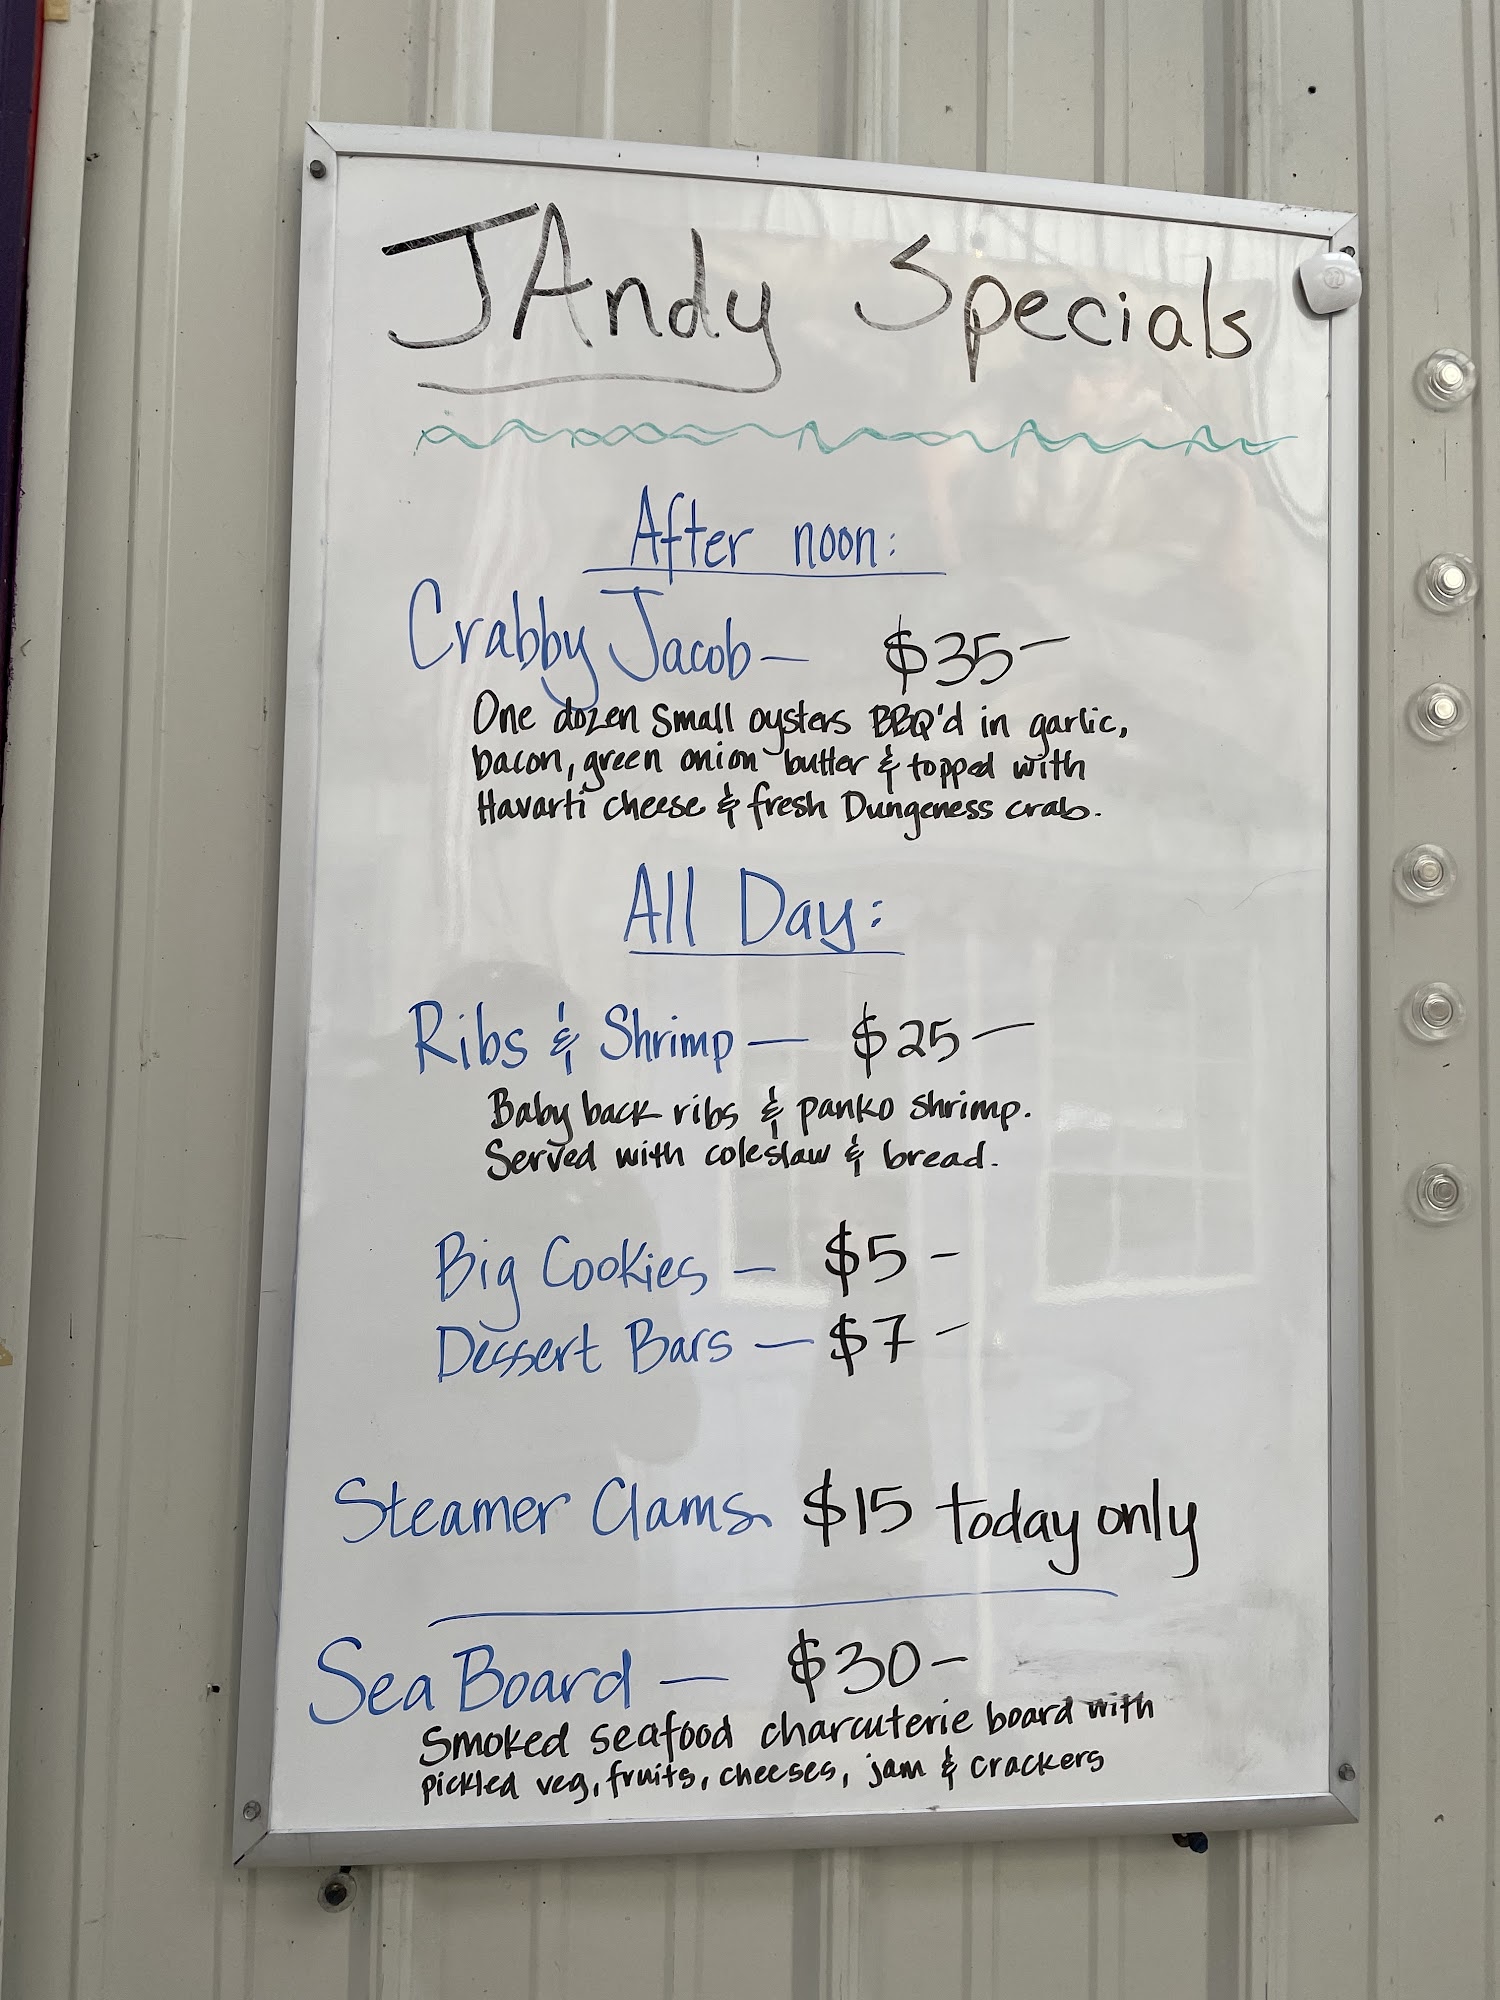 JAndy Specials
After noon:
Crabby Jacob — $35 —
One dozen small oysters BBQ'd in garlic,
bacon, green onion butter & topped with
Havarti cheese & fresh Dungeness crab.
All Day:
Ribs & Shrimp — $25 —
Baby back ribs & panko shrimp.
Served with coleslaw & bread.
Big Cookies — $5 —
Dessert Bars — $7 —
Steamer Clams $15 today only
Sea Board — $30 —
Smoked seafood charcuterie board with
pickled veg, fruits, cheeses, jam & crackers